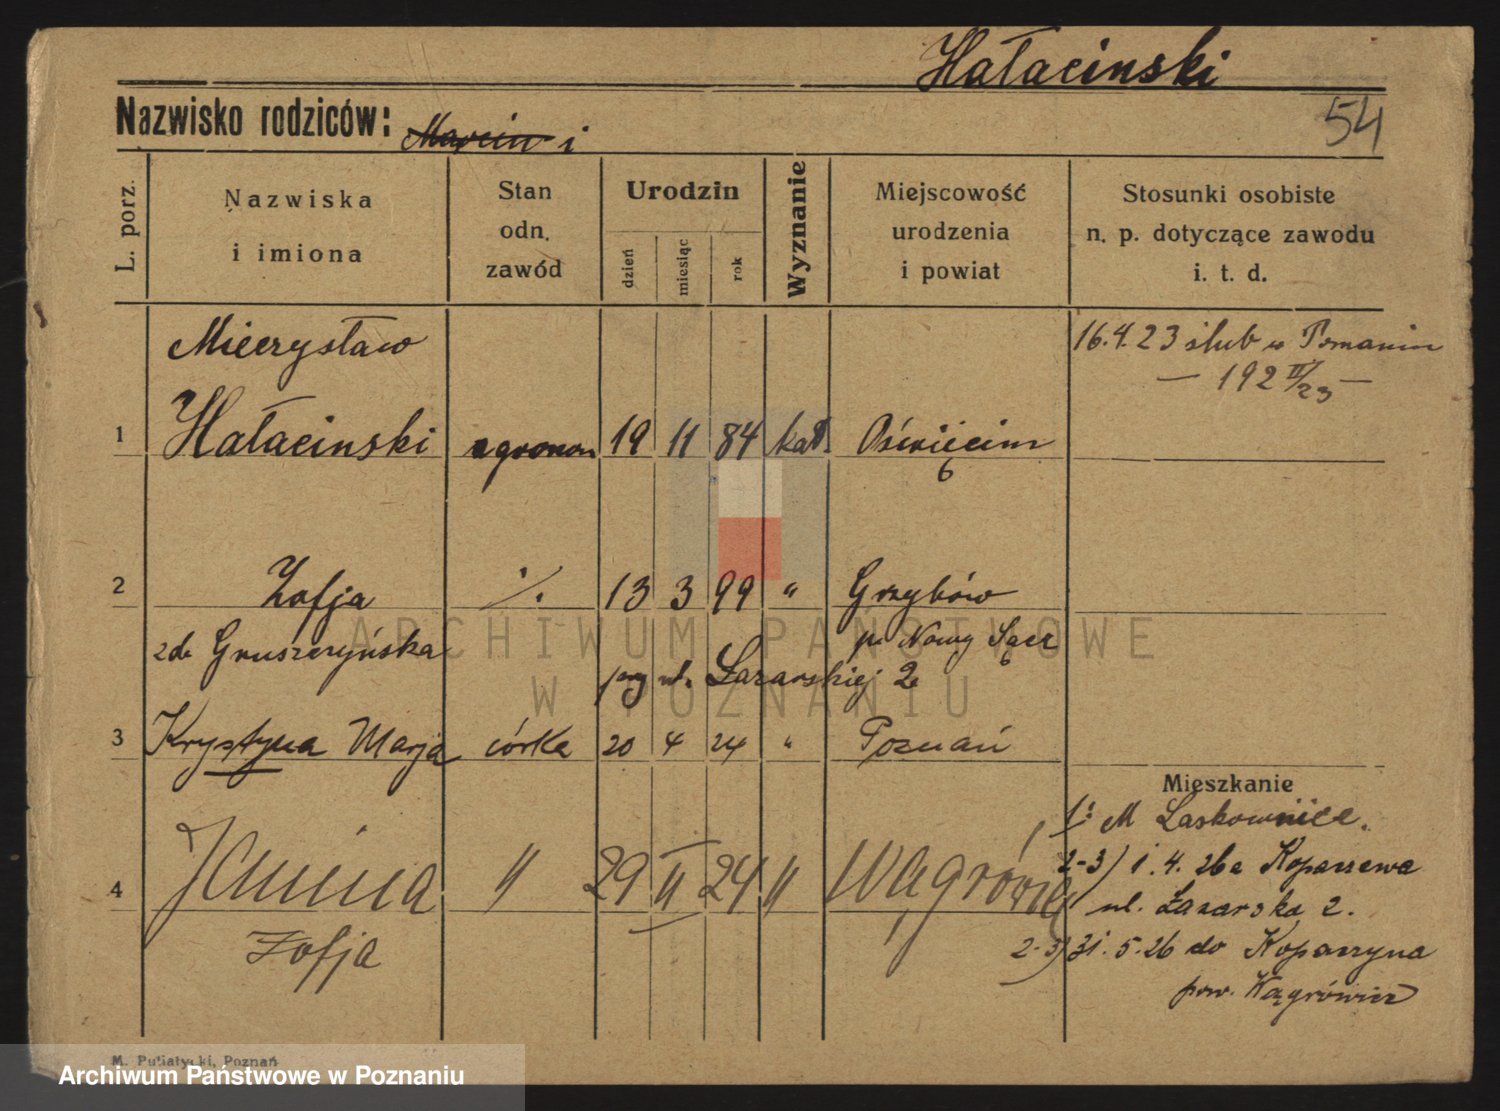 Hałacinski
Nazwisko rodziców: Marcin i
54
L. porz.
Nazwiska
i imiona
Stan
odn.
zawód
Urodzin
dzień
miesiąc
rok
Wyznanie
Miejscowość
urodzenia
i powiat
Stosunki osobiste
n. p. dotyczące zawodu
i. t. d.
Mieczysław
16.4.23 ślub w Poznaniu
— 192 II/23 —
1 Hałacinski agronom 19 11 84 kat. Oświęcim
6
2 Zofja ·/. 13 3 99 " Grzybów
zd. Gruszczyńska p. Nowy Sącz
przy ul. Łazarskiej 2
3 Krystyna Marja córka 20 4 24 " Poznań
Mieszkanie
1: M Laskownice.
2-3) 1.4.26 Koparzewa
4 Janina " 29 II 24 " Wągrówiec
ul. Łazarska 2.
Zofja
2-3) 31.5.26 do Kopaszyna
pow. Wągrówiec
M. Putiatycki, Poznań
ARCHIWUM PAŃSTWOWE
W POZNANIU
Archiwum Państwowe w Poznaniu